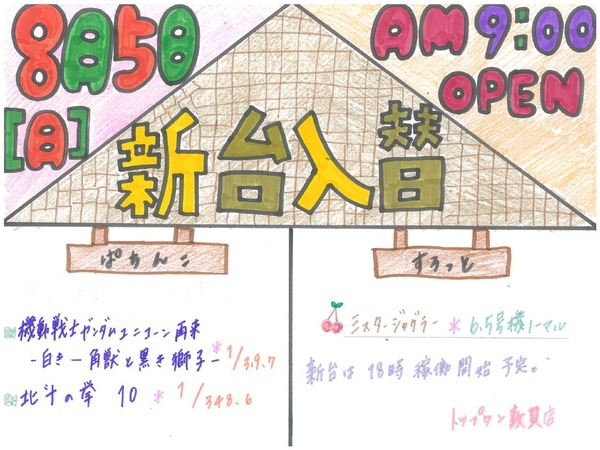 8月5日
[月]
AM9:00
OPEN
新台入替
ぱちんこ
機動戦士ガンダムユニコーン再来
-白き一角獣と黒き獅子- *1/319.7
北斗の拳 10 *1/348.6
すろっと
ミスタージャグラー *6.5号機ノーマル
新台は18時稼働開始予定。
トップワン敦賀店